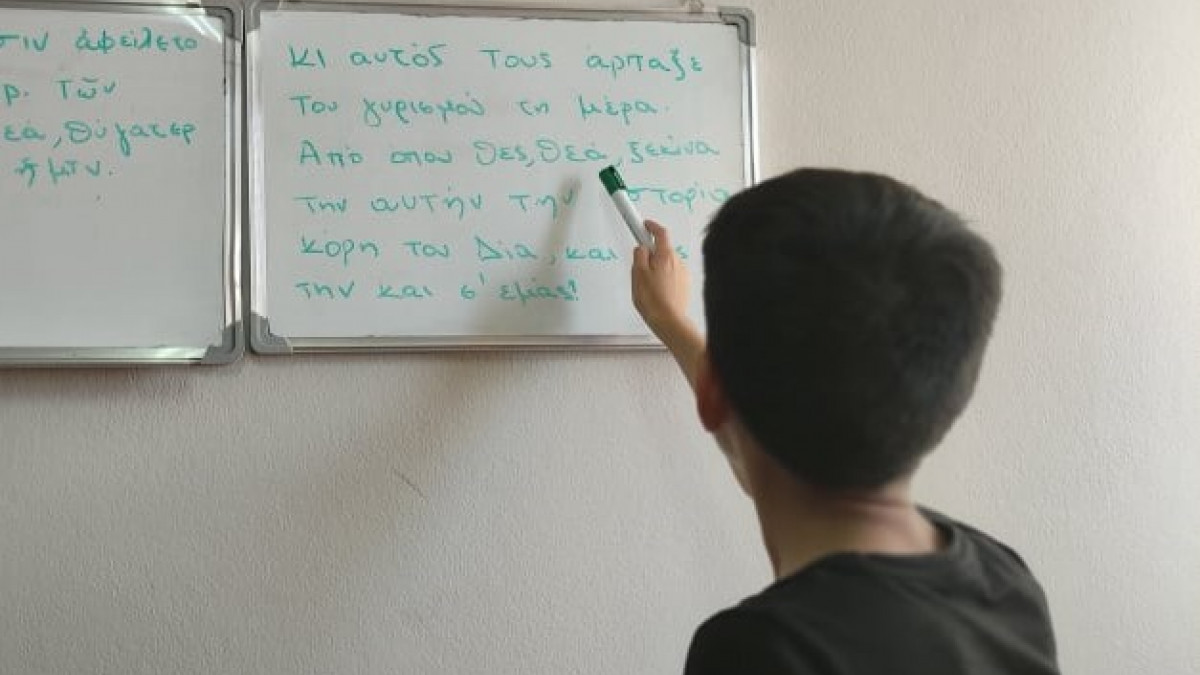 σιν ἀφείλετο
ρ. τῶν
εά, θύγατερ
ἡμῖν.
κι αυτός τους άρπαξε
του γυρισμού τη μέρα.
Από οπου θες, θεά, ξεκίνα
την αυτήν την στορία
κόρη του Δία, και
την και σ' εμάς!